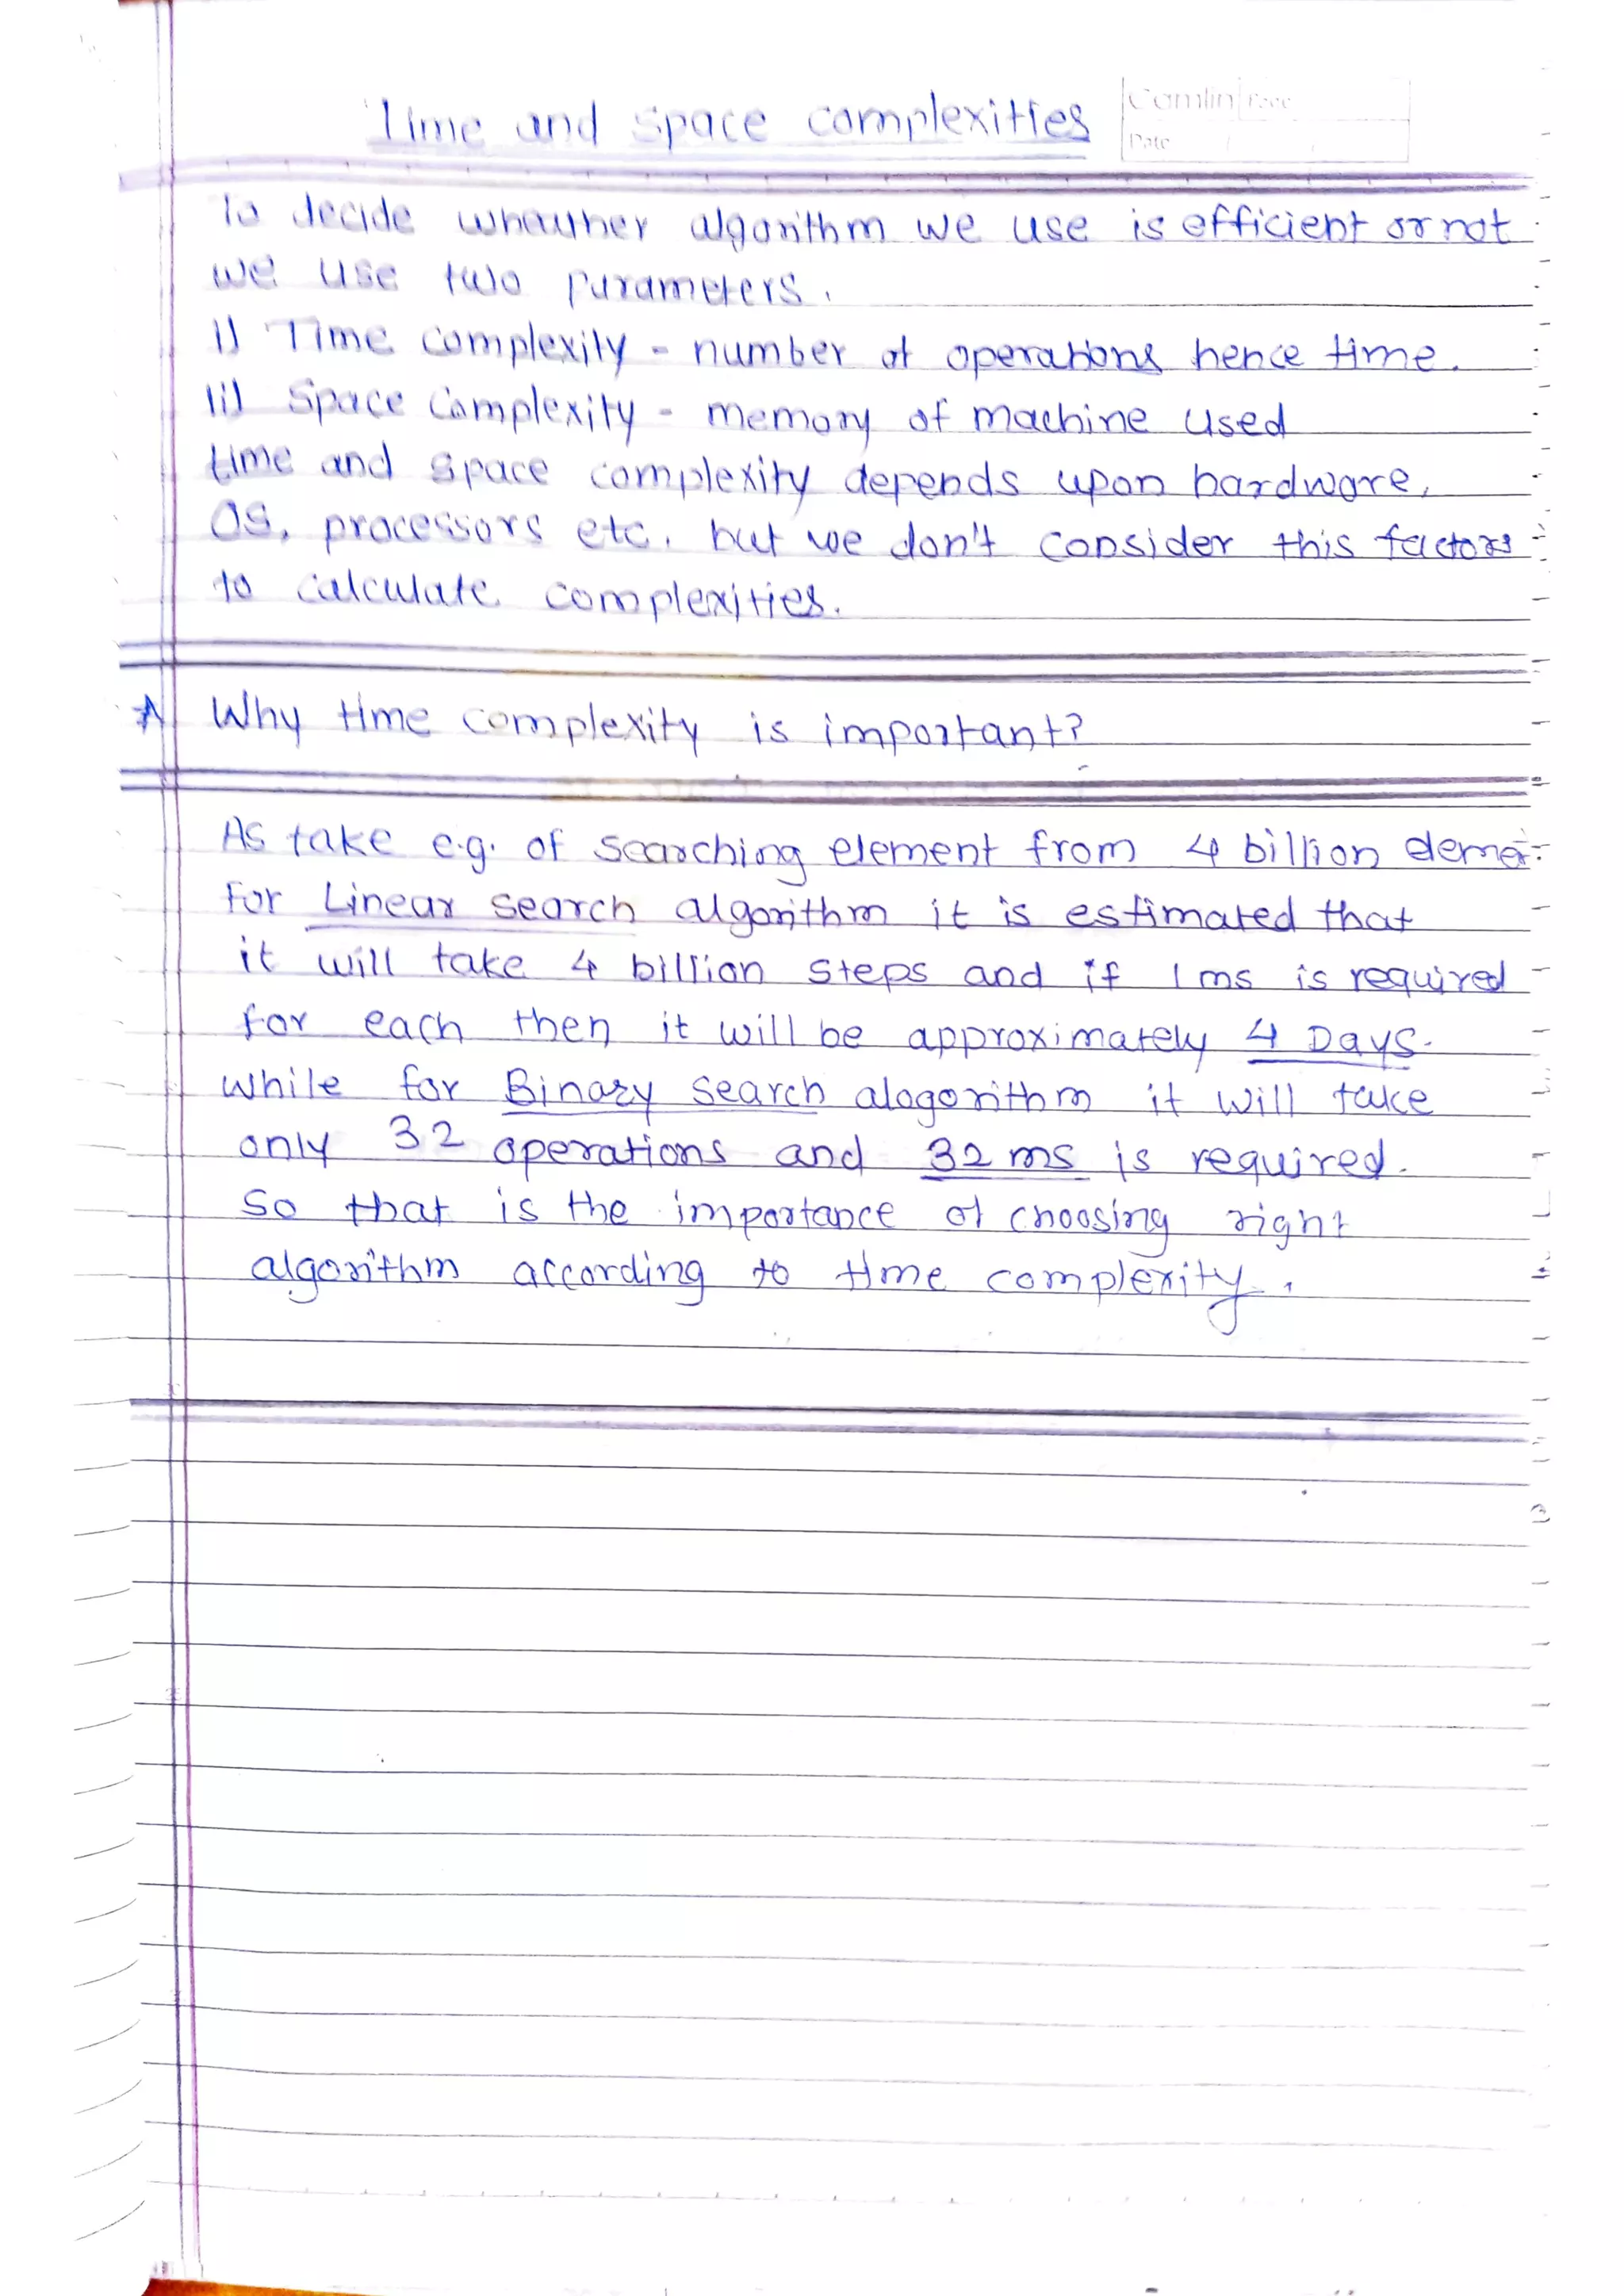 Time and space complexities
Camlin Page
Date / /
To decide whauther algorithm we use is efficient or not
we use two Parameters.
i) Time complexity - number of operations hence time.
ii) Space Complexity - memory of machine used
time and space complexity depends upon hardware,
OS, processors etc. but we don't consider this factors
to calculate complexities.
* Why time complexity is important?
As take e.g. of searching element from 4 billion
For Linear search algorithm it is estimated that
it will take 4 billion steps and if 1 ms is required
for each then it will be approximately 4 Days.
while for Binary search alogorithm it will take
only 32 operations and 32 ms is required.
So that is the importance of choosing right
algorithm according to time complexity.